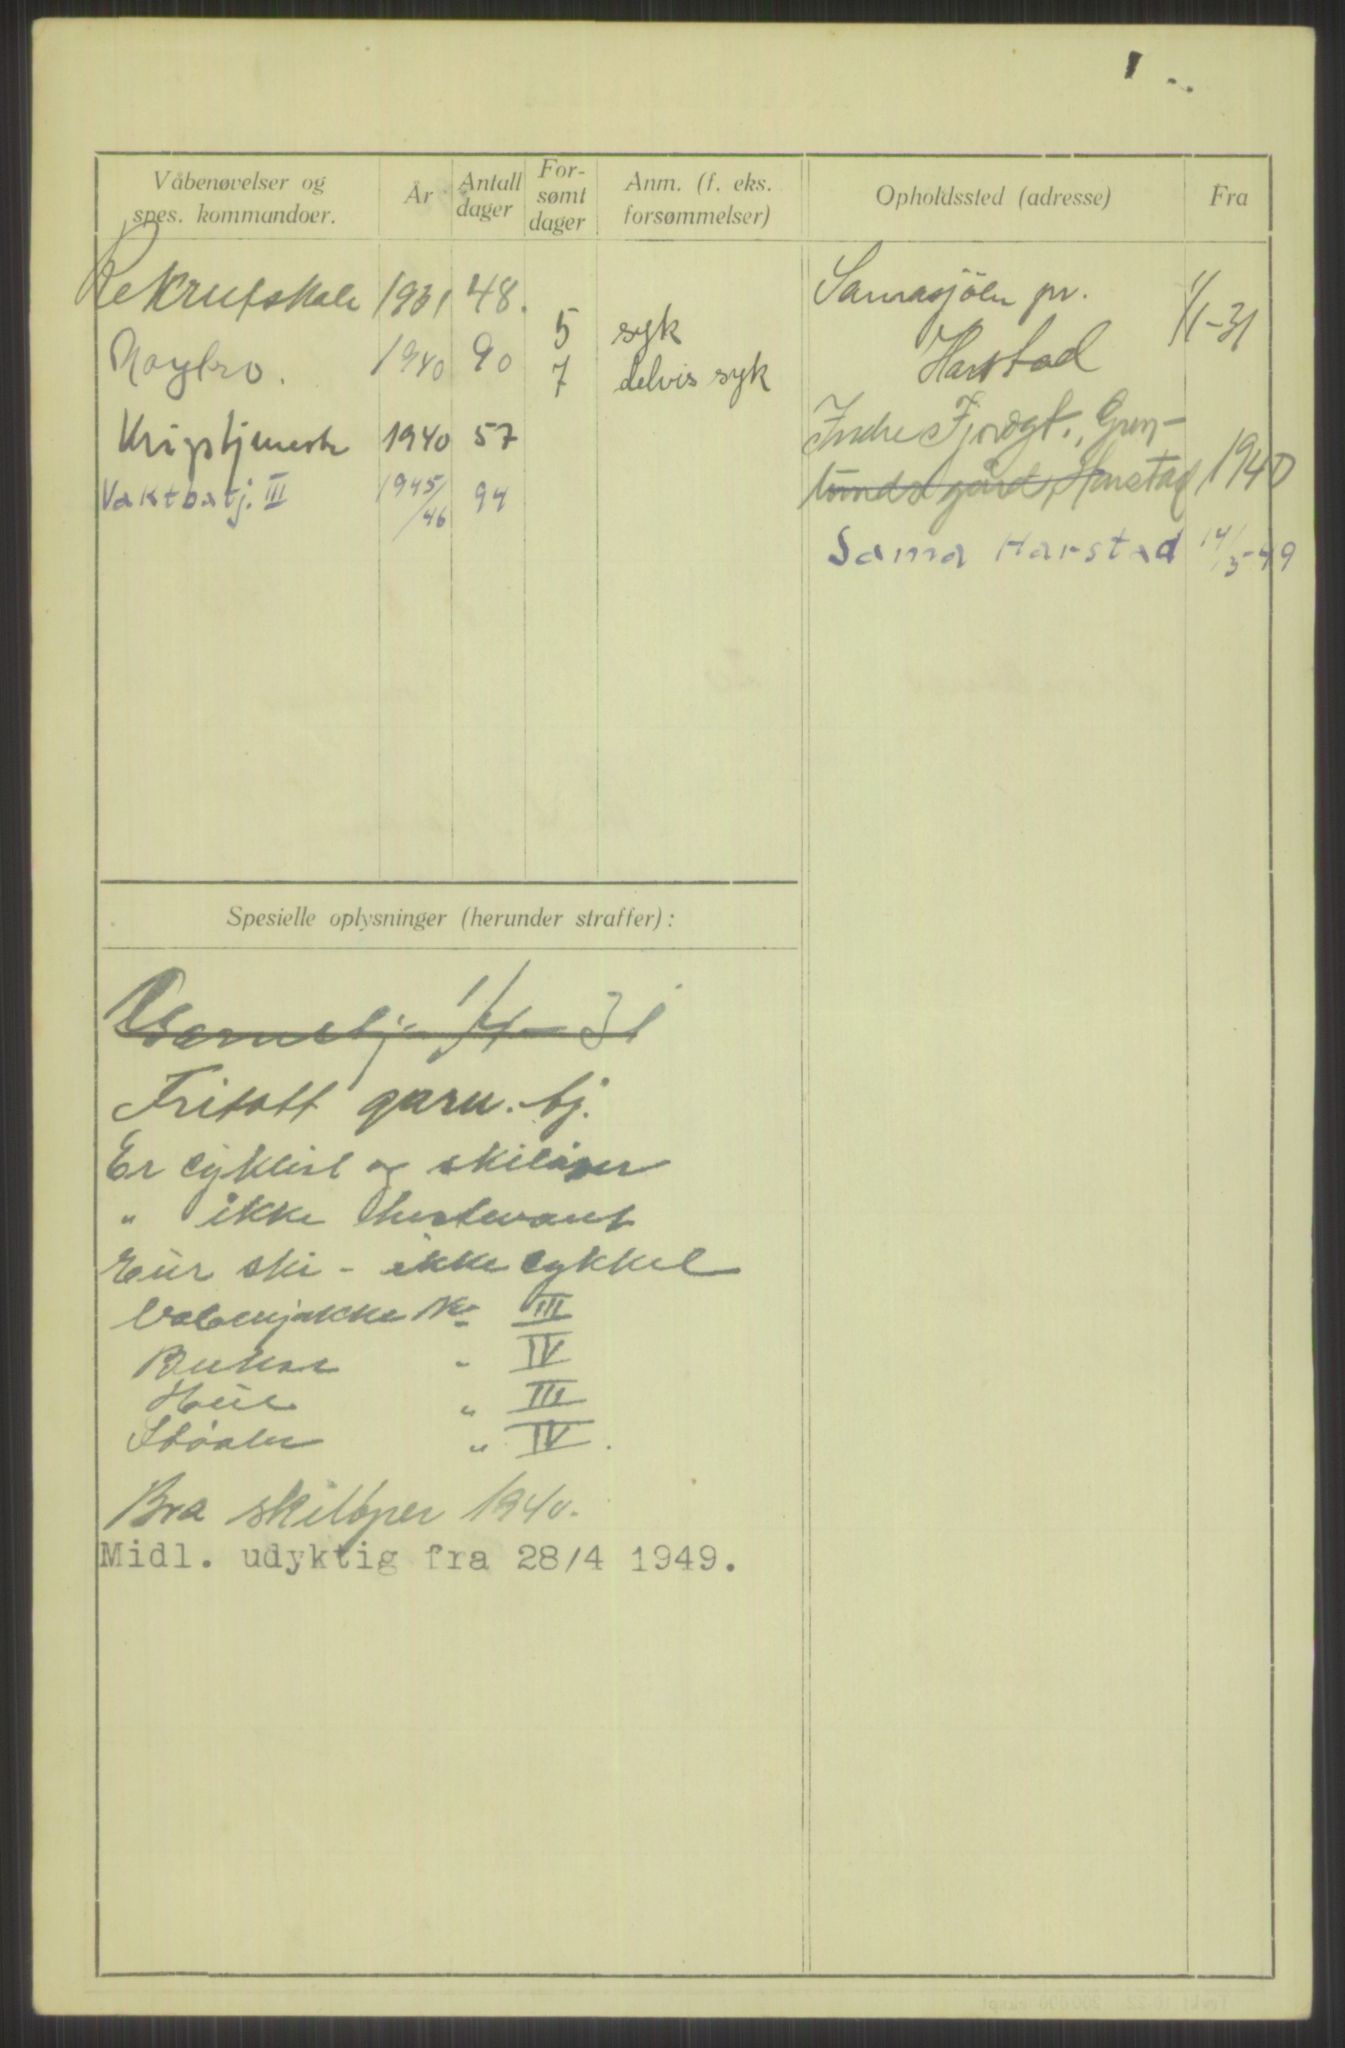 Våbenøvelser og spes. kommandoer. År Antall dager For-sømt dager Anm. (f. eks. forsømmelser) Opholdssted (adresse) Fra
Rekrutskole 1931 48. Samasjöen pr. Harstad 1/1-31
5 syk
Nøytrv. 1940 90 7 delvis syk
Krigstjeneste 1940 57
Indre Fjordgt., Grøn-
lunds gård, Harstad 1940
Vaktbatj. III 1945/46 94
Sama Harstad 14/3-49
Spesielle oplysninger (herunder straffer):
Garnstj. 1/4-31
Fritatt garn.tj.
Er cyklist og skiløper
" ikke hestevant
Eier ski - ikke cykkel
Våbenjakke No III
Bukse " IV
Hue " III
Støvler " IV.
Bra skiløper 1940.
Midl. udyktig fra 28/4 1949.